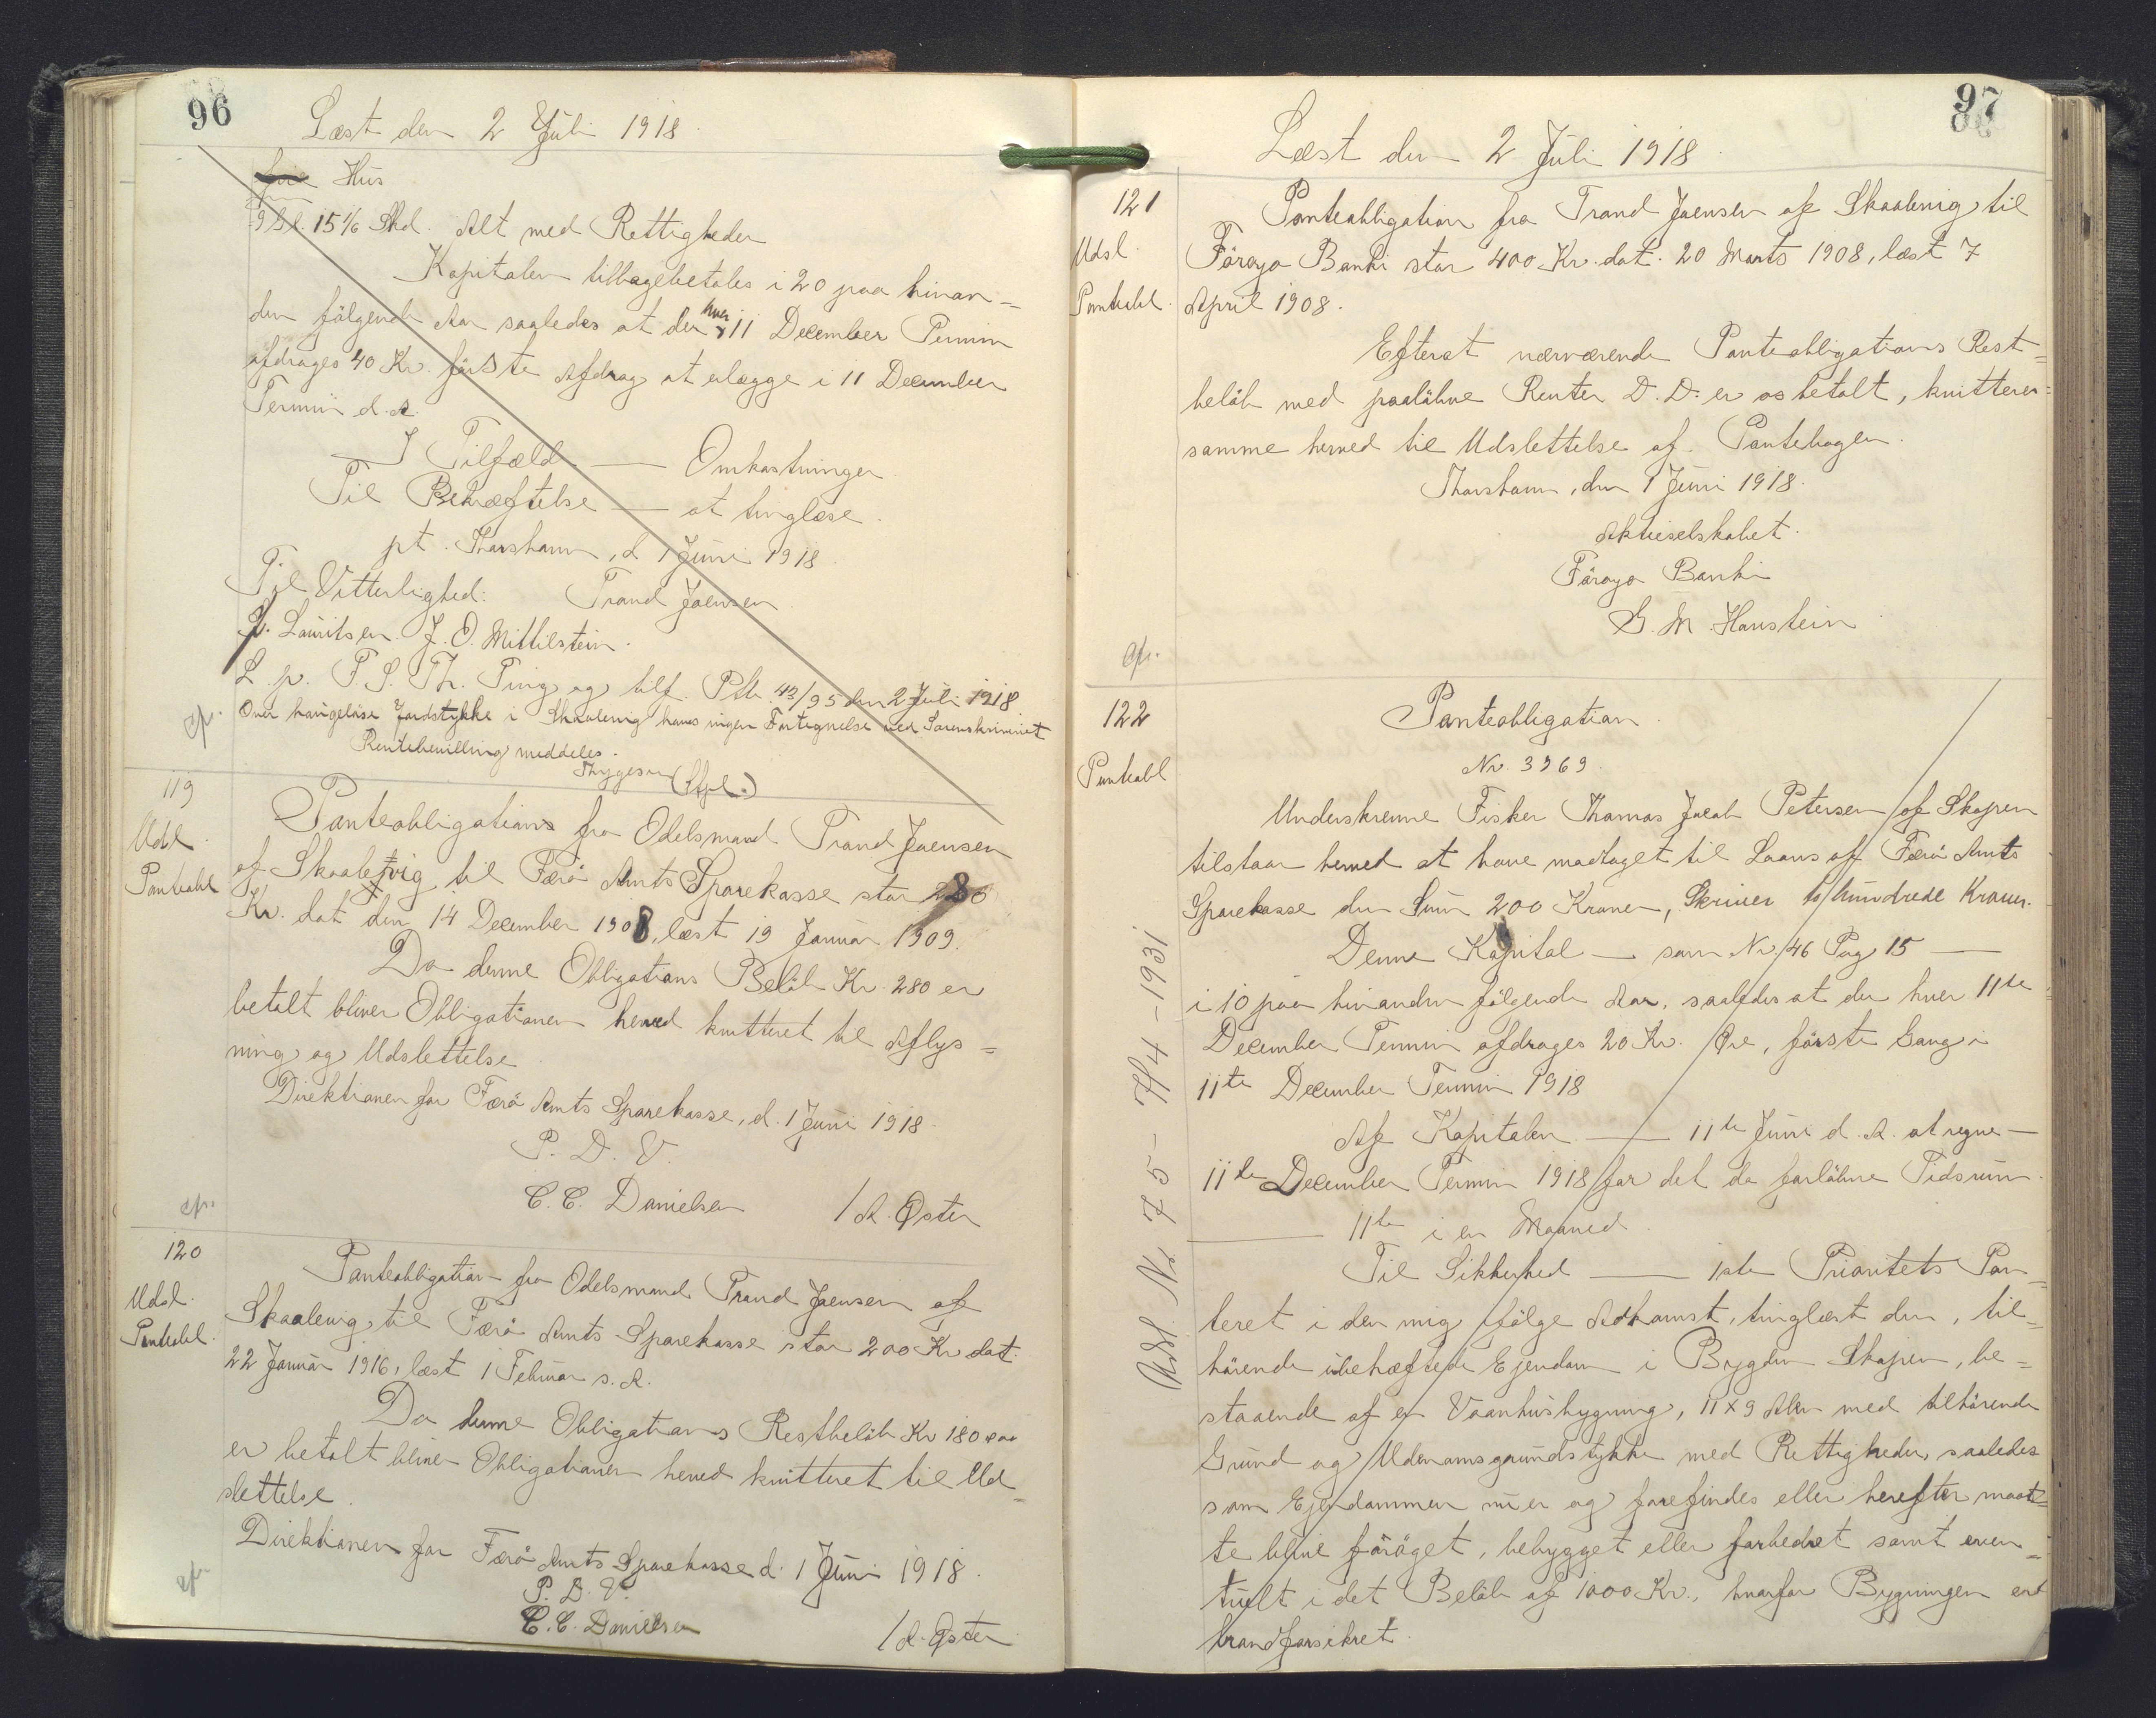 96
Læst den 2 Juli 1918
Hus
9 Sk. 15 1/6 Skd. Alt med Rettigheder
Kapitalen tilbagebetales i 20 paa hinan=
den følgende Aar saaledes at der hver 11 December Termin
afdrages 40 Kr. første Afdrag at erlægge i 11 December
Termin d. A.
I Tilfæld — Omkostninger
Til Bekræftelse — at tinglæse.
pt. Thorshavn, d. 1 Juni 1918
Til Vitterlighed: Trand Joensen
P. Lauritsen. J. O. Mittelstein.
L. p. F. S. Th. Ting og tilf. Ptb. 43/95 den 2 Juli 1918
Over haugeløse Jordstykke i Skaalevig haves ingen Fortegnelse ved Sorenskriveriet
Rentebevilling meddeles.
Thygesen (Stpl.)
cfr.
119
Udsl.
Panteobl
Panteobligations fra Odelsmand Trand Joensen
af Skaalevig til Færø Amts Sparekasse stor 280
Kr. dat den 14 December 1908, læst 19 Januar 1909.
Da denne Obligations Beløb Kr. 280 er
betalt bliver Obligationen herved kvitteret til Aflys=
ning og Udslettelse
Direktionen for Færø Amts Sparekasse, d. 1 Juni 1918.
P. D. V.
C. C. Danielsen / A. Øster
cfr.
120
Udsl.
Panteobl.
Panteobligation fra Odelsmand Trand Joensen af
Skaalevig til Færø Amts Sparekasse stor 200 Kr dat.
22 Januar 1916, læst 1 Februar s. A.
Da denne Obligations Restbeløb Kr 180
er betalt bliver Obligationen herved kvitteret til Ud=
slettelse.
Direktionen for Færø Amts Sparekasse d. 1 Juni 1918.
P. D. V.
C. C. Danielsen / A. Øster
cfr.
97
Læst den 2 Juli 1918
121
Udsl.
Panteobl.
Panteobligation fra Trand Joensen af Skaalevig til
Föroya Banki stor 400 Kr. dat. 20 Marts 1908, læst 7
April 1908.
Efterat nærværende Panteobligations Rest=
beløb med paaløbne Renter D. D. er os betalt, kvitteres
samme herved til Udslettelse af Pantebogen.
Thorshavn, den 1 Juni 1918.
Aktieselskabet.
Föroya Banki
G. M. Hanstein
cfr.
122
Panteobl
Panteobligation.
Nr. 3969.
Underskrevne Fisker Thomas Jacob Petersen af Skopen
tilstaar herved at have modtaget til Laans af Færø Amts
Sparekasse den Sum 200 Kroner, Skriver to hundrede Kroner.
Denne Kapital — som Nr. 46 Pag 15 —
i 10 paa hinanden følgende Aar, saaledes at der hver 11te
December Termin afdrages 20 Kr. Øre, første Gang i
11te December Termin 1918
Af Kapitalen — 11te Juni d. A. at regne —
11te December Termin 1918 for det da forløbne Tidsrum.
— 11te i en Maaned.
Til Sikkerhed — 1ste Prioritets Pan=
teret i den mig ifølge Adkomst, tinglæst den , til=
hørende ubehæftede Ejendom i Bygden Skopen, be=
staaende af en Vaanhusbygning, 11 x 9 Alen med tilhørende
Grund og Udenomsgrundstykke med Rettigheder, saaledes
som Ejendommen nu er og forefindes eller herefter maat=
te blive forøget, bebygget eller forbedret samt even=
tuelt i det Beløb af 1000 Kr., hvorfor Bygningen er
brandforsikret.
Udsl. No 75 - 7/4 - 1931